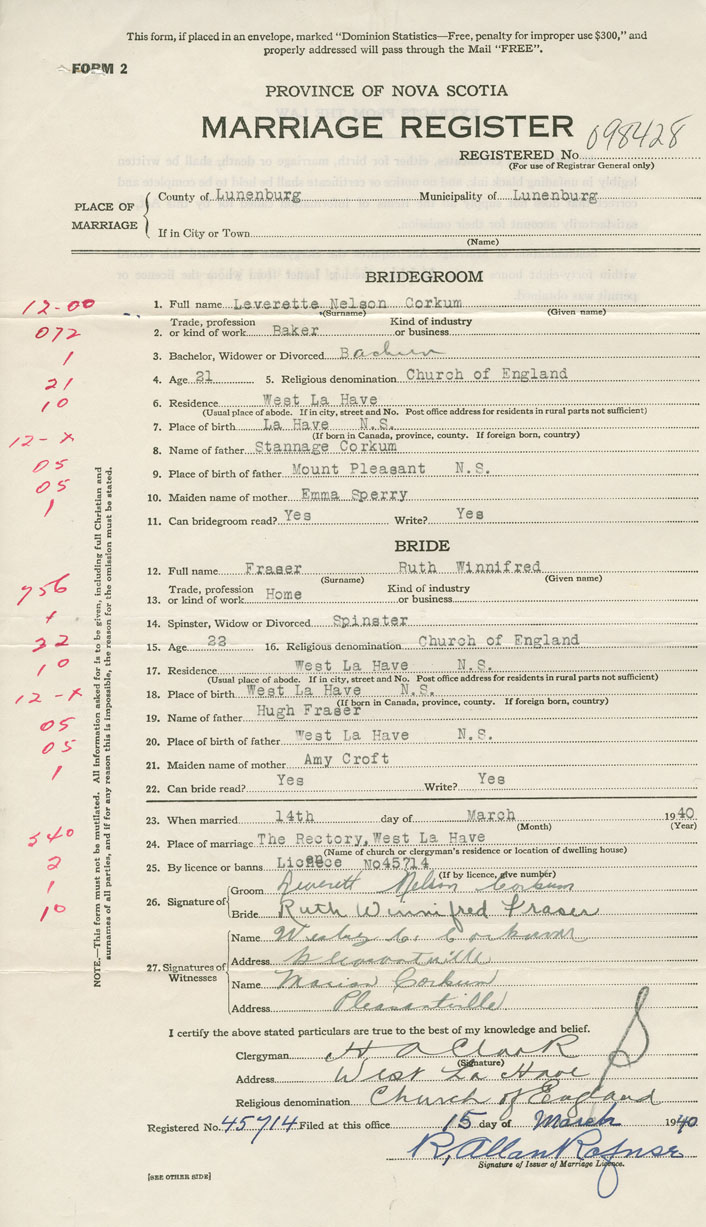 This form, if placed in an envelope, marked “Dominion Statistics—Free, penalty for improper use $300,” and
properly addressed will pass through the Mail “FREE”.
FORM 2
PROVINCE OF NOVA SCOTIA
MARRIAGE REGISTER
098428
REGISTERED No.
(For use of Registrar General only)
PLACE OF MARRIAGE
County of Lunenburg Municipality of Lunenburg
If in City or Town
(Name)
BRIDEGROOM
12-00 1. Full name Leverette Nelson Corkum
(Surname) (Given name)
072 2. Trade, profession or kind of work Baker Kind of industry or business
1 3. Bachelor, Widower or Divorced
21 4. Age 21 5. Religious denomination Church of England
10 6. Residence West La Have
(Usual place of abode. If in city, street and No. Post office address for residents in rural parts not sufficient)
12-x 7. Place of birth La Have N.S.
(If born in Canada, province, county. If foreign born, country)
05 8. Name of father Stannage Corkum
05 9. Place of birth of father Mount Pleasant N.S.
1 10. Maiden name of mother Emma Sperry
11. Can bridegroom read? Yes Write? Yes
BRIDE
12. Full name Fraser Ruth Winnifred
(Surname) (Given name)
756 13. Trade, profession or kind of work Home Kind of industry or business
14. Spinster, Widow or Divorced Spinster
22 15. Age 22 16. Religious denomination Church of England
10 17. Residence West La Have N.S.
(Usual place of abode. If in city, street and No. Post office address for residents in rural parts not sufficient)
12-x 18. Place of birth West La Have N.S.
(If born in Canada, province, county. If foreign born, country)
05 19. Name of father Hugh Fraser
05 20. Place of birth of father West La Have N.S.
1 21. Maiden name of mother Amy Croft
22. Can bride read? Yes Write? Yes
23. When married 14th day of March 1940
(Month) (Year)
340 24. Place of marriage The Rectory, West La Have
(Name of church or clergyman's residence or location of dwelling house)
2 25. By licence or banns No45714
(If by licence, give number)
1 26. Signature of Groom Leverett Nelson Corkum
10 Bride Ruth Winnifred Fraser
27. Signatures of Witnesses
Name Corkum
Address Pleasantville
Name Marion Corkum
Address Pleasantville
NOTE.—This form must not be mutilated. All information asked for is to be given, including full Christian and
surnames of all parties, and if for any reason this is impossible, the reason for the omission must be stated.
I certify the above stated particulars are true to the best of my knowledge and belief.
Clergyman H A Clark
(Signature)
Address West La Have
Religious denomination Church of England
Registered No. 45714 Filed at this office 15 day of March 1940
R. Allan Rafuse
Signature of Issuer of Marriage Licence.
[SEE OTHER SIDE]